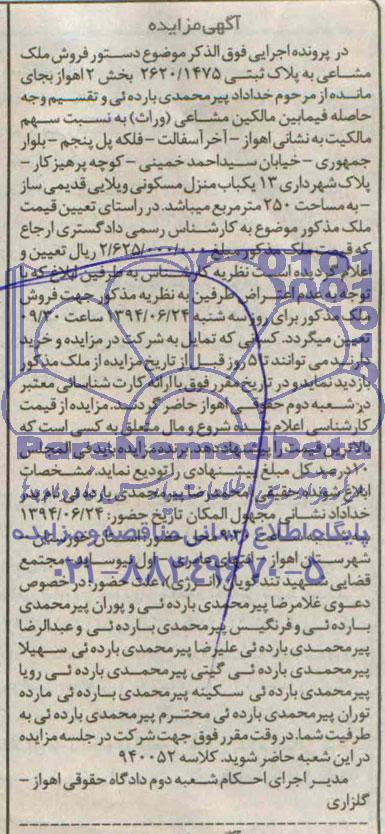 آگهی مزایده
در پرونده اجرایی فوق الذکر موضوع دستور فروش ملک
مشاعی به پلاک ثبتی ۲۶۲۰/۱۴۷۵ بخش ۲ اهواز بجای
مانده از مرحوم خداداد پیرمحمدی بارده ئی و تقسیم وجه
حاصله فیمابین مالکین مشاعی (وراث) به نسبت سهم
مالکیت به نشانی اهواز – آخر آسفالت – فلکه پل پنجم – بلوار
جمهوری – خیابان سیداحمد خمینی – کوچه پرهیزکار –
پلاک شهرداری ۱۳ یکباب منزل مسکونی ویلایی قدیمی ساز
– به مساحت ۲۵۰ مترمربع میباشد. در راستای تعیین قیمت
ملک مذکور موضوع به کارشناس رسمی دادگستری ارجاع
که قیمت ملک مذکور مبلغ ۲/۶۲۵/۰۰۰/۰۰۰ ریال تعیین و
اعلام گردیده است نظریه کارشناس به طرفین ابلاغ که با
توجه به عدم اعتراض طرفین به نظریه مذکور جهت فروش
ملک مذکور برای روز سه شنبه ۱۳۹۴/۰۶/۲۴ ساعت ۰۹/۳۰
تعیین میگردد. کسانی که تمایل به شرکت در مزایده و خرید
دارند می توانند تا ۵ روز قبل از تاریخ مزایده از ملک مذکور
بازدید نماید و در تاریخ مقرر فوق با ارائه کارت شناسائی معتبر
در شعبه دوم حقوقی اهواز حاضر گردند. مزایده از قیمت
کارشناسی اعلام شده شروع و مال متعلق به کسی است که
بالاترین قیمت را پیشنهاد دهد. برنده مزایده باید فی المجلس
۱۰ درصد کل مبلغ پیشنهادی را تودیع نماید. مشخصات
ابلاغ شونده حقیقی: محمدرضا پیرمحمدی بارده ئی نام پدر
خداداد نشانی: مجهول المکان تاریخ حضور: ۱۳۹۴/۰۶/۲۴
ساعت محل حضور: استان خوزستان –
شهرستان اهواز – اول نیوساید – مجتمع
قضایی شهید تندگویان (انرژی) علت حضور: در خصوص
دعوی غلامرضا پیرمحمدی بارده ئی و پوران پیرمحمدی
بارده ئی و فرنگیس پیرمحمدی بارده ئی و عبدالرضا
پیرمحمدی بارده ئی علیرضا پیرمحمدی بارده ئی سهیلا
پیرمحمدی بارده ئی گیتی پیرمحمدی بارده ئی رویا
پیرمحمدی بارده ئی سکینه پیرمحمدی بارده ئی مارده
توران پیرمحمدی بارده ئی محترم پیرمحمدی بارده ئی به
طرفیت شما، در وقت مقرر فوق جهت شرکت در جلسه مزایده
در این شعبه حاضر شوید. کلاسه ۹۴۰۰۵۲
مدیر اجرای احکام شعبه دوم دادگاه حقوقی اهواز –
گلزاری
ParsNamadData
پایگاه اطلاع رسانی مناقصه و مزایده
۰۲۱-۸۸۳۴۹۶۷۰-۵